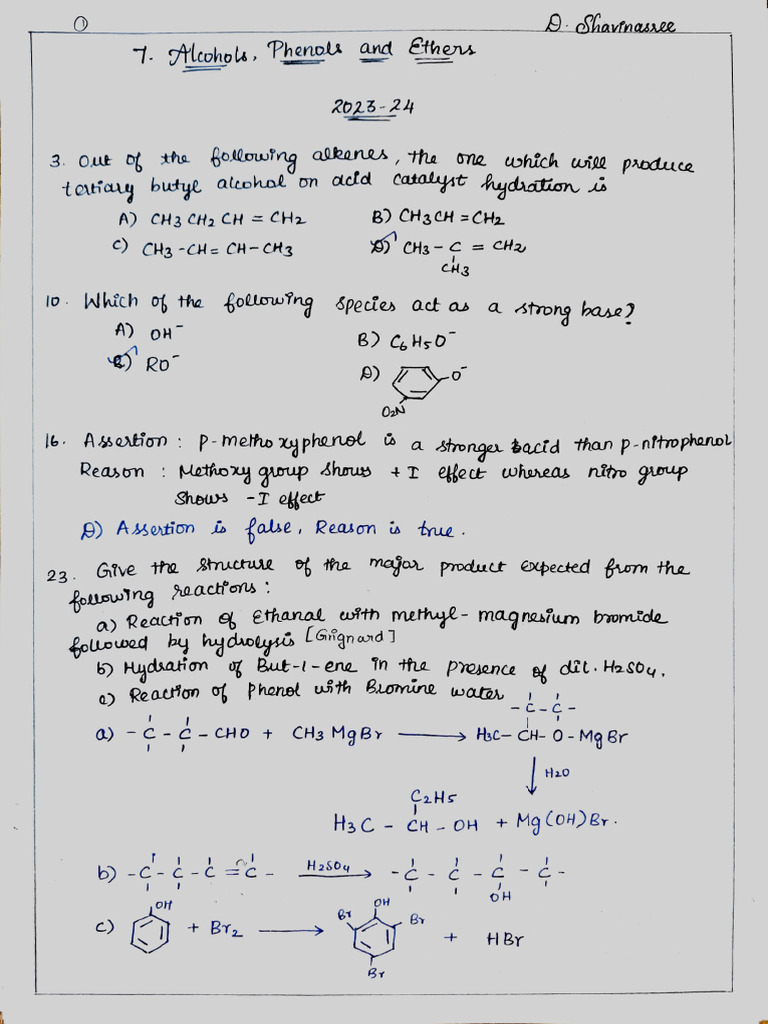 1
D. Shavinassree
7. Alcohols, Phenols and Ethers
2023-24
3. Out of the following alkenes, the one which will produce
tertiary butyl alcohol on acid catalyst hydration is
A) CH3 CH2 CH = CH2 B) CH3CH = CH2
C) CH3 - CH = CH - CH3 D) CH3 - C = CH2
CH3
10. Which of the following species act as a strong base?
A) OH⁻ B) C6H5O⁻
C) RO⁻ D) O⁻
O2N
16. Assertion : P-methoxyphenol is a stronger acid than p-nitrophenol
Reason : Methoxy group shows + I effect whereas nitro group
shows - I effect
D) Assertion is false, Reason is true.
23. Give the structure of the major product expected from the
following reactions :
a) Reaction of Ethanal with methyl-magnesium bromide
followed by hydrolysis [Grignard]
b) Hydration of But-1-ene in the presence of dil. H2SO4.
c) Reaction of Phenol with Bromine water
- C - C -
a) - C - C - CHO + CH3 MgBr → H3C - CH - O - MgBr
↓ H2O
C2H5
H3C - CH - OH + Mg(OH)Br.
b) - C - C - C = C - H2SO4 → - C - C - C - C -
OH
OH OH
c) + Br2 → Br Br + HBr
Br